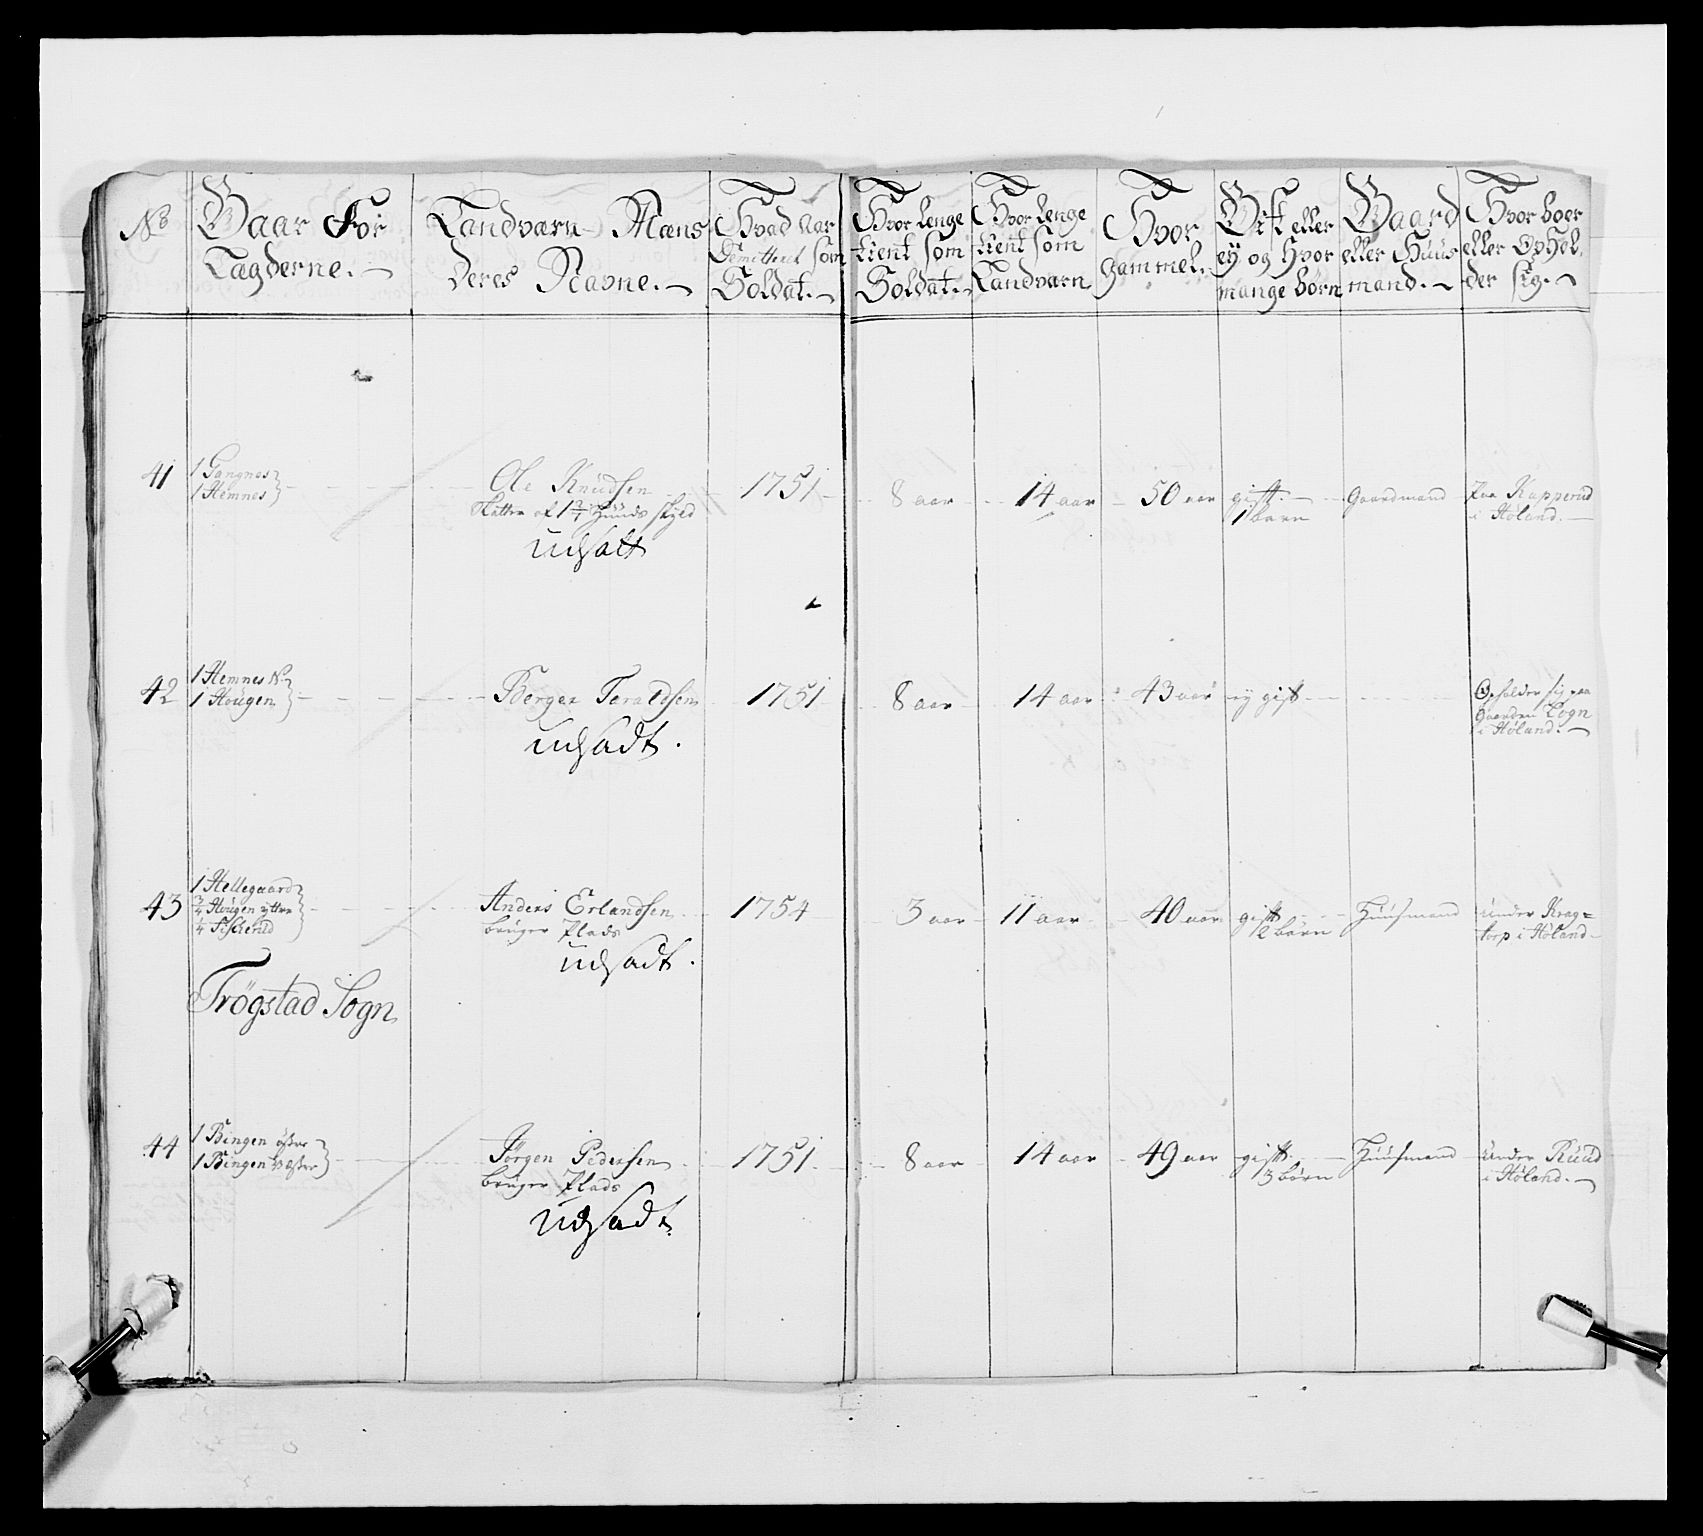 No
Gaar For
Lægderne.
Landværn Mæns
deres Nafne.
Hvad Aar
Demitteret som
Soldat.
Hvor lenge
tient som
Soldat.
Hvor lenge
tient som
Landværn
Hvor
gammel.
Gift eller
ey og Hvor
mange børn
Gaard
eller Huus
mand.
Hvor boer
eller Ophol
der sig.
41
1 Gangnes
1 Hemnes
Ole Knudsen
Skatter af 1 3/4 Hunds skyld
udsatt
1751
8 aar
14 aar
50 aar
gift
1 barn
Gaardmand
Paa Kapperud
i Høland.
42
1 Hemnes N.
1 Hougen
Berger Taraldsen
udsadt.
1751
8 aar
14 aar
43 aar
ey gift
Opholder sig paa
Gaarden Logn
i Høland.
43
1 Hellegaard
3/4 Hougen yttre
1/4
Anders Erlandsen
bruger Plads
udsadt.
1754
3 aar
11 aar
40 aar
gift
2 børn
Huusmand
under Krag=
torp i Høland
Trögstad Sogn
44
1 Bingen östre
1 Bingen væstre
Jörgen Pedersen
bruger Plads
udsadt.
1751
8 aar
14 aar
49 aar
gift
3 børn
Huusmand
under Ruud
i Høland.